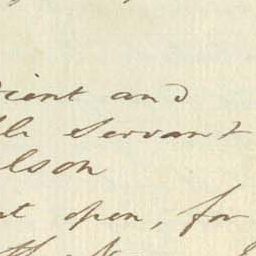 dient and
ble Servant
lson
nt open, for